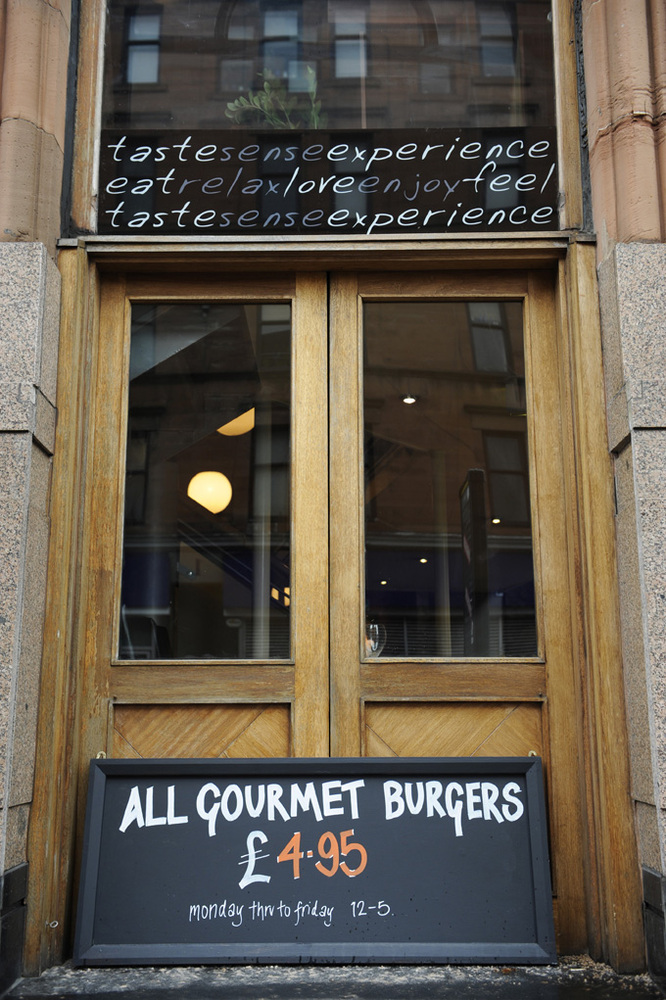 tastesenseexperience
eatrelaxloveenjoyfeel
tastesenseexperience
ALL GOURMET BURGERS
£4.95
monday thru to friday 12-5.